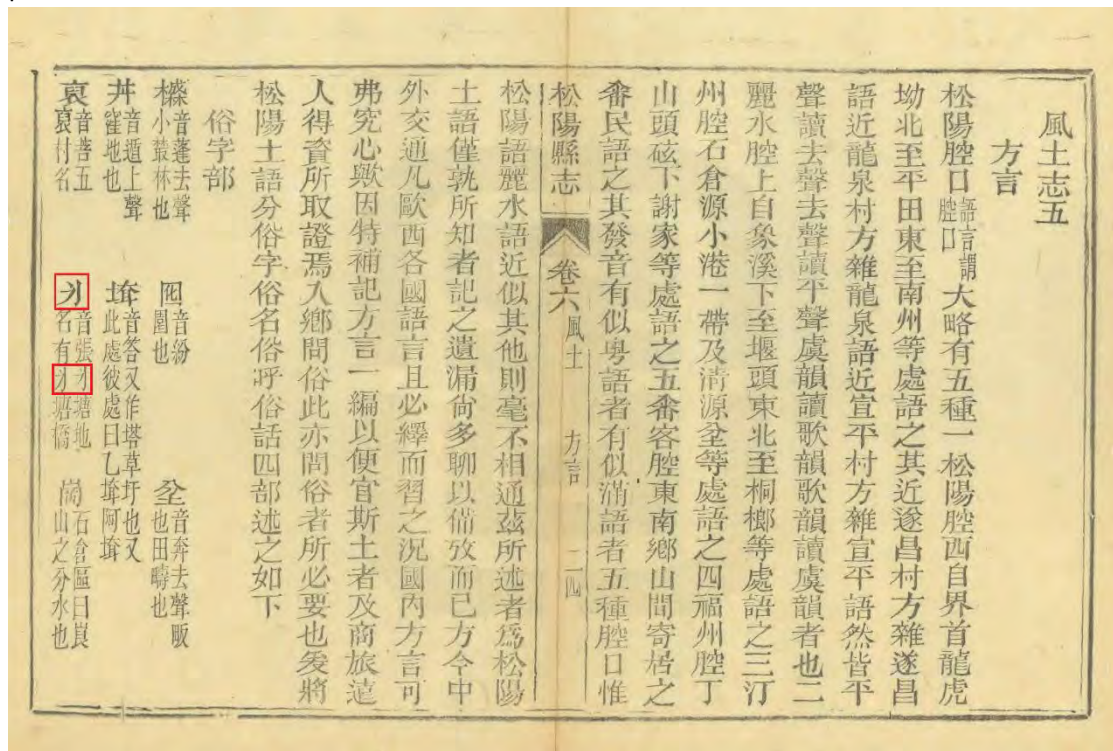 風土志五
方言
松陽腔口語言謂腔口大略有五種一松陽腔西自界首龍虎
坳北至平田東至南州等處語之其近遂昌村方雜遂昌
語近龍泉村方雜龍泉語近宣平村方雜宣平語然皆平
聲讀去聲去聲讀平聲虞韻讀歌韻歌韻讀虞韻者也二
麗水腔上自象溪下至堰頭東北至桐榔等處語之三汀
州腔石倉源小港一帶及清源坌等處語之四福州腔丁
山頭砿下謝家等處語之五畲客腔東南鄉山間寄居之
畲民語之其發音有似粵語者有似滿語者五種腔口惟
松陽縣志 卷六 風土 方言 二四
松陽語麗水語近似其他則毫不相通茲所述者爲松陽
土語僅就所知者記之遺漏尙多聊以備攷而已方今中
外交通凡歐西各國語言且必繹而習之況國內方言可
弗究心歟因特補記方言一編以便官斯土者及商旅遠
人得資所取證焉入鄉問俗此亦問俗者所必要也爰將
松陽土語分俗字俗名俗呼俗話四部述之如下
俗字部
音蓬去聲小菽林也 音紛圍也 坌音奔去聲畈也田疇也
丼音遁上聲窪地也 音答又作塔草圩也又此處彼處曰乙 阿
音菩五 村名 音張 塘地名有 塘橋 石倉區曰崀山之分水也